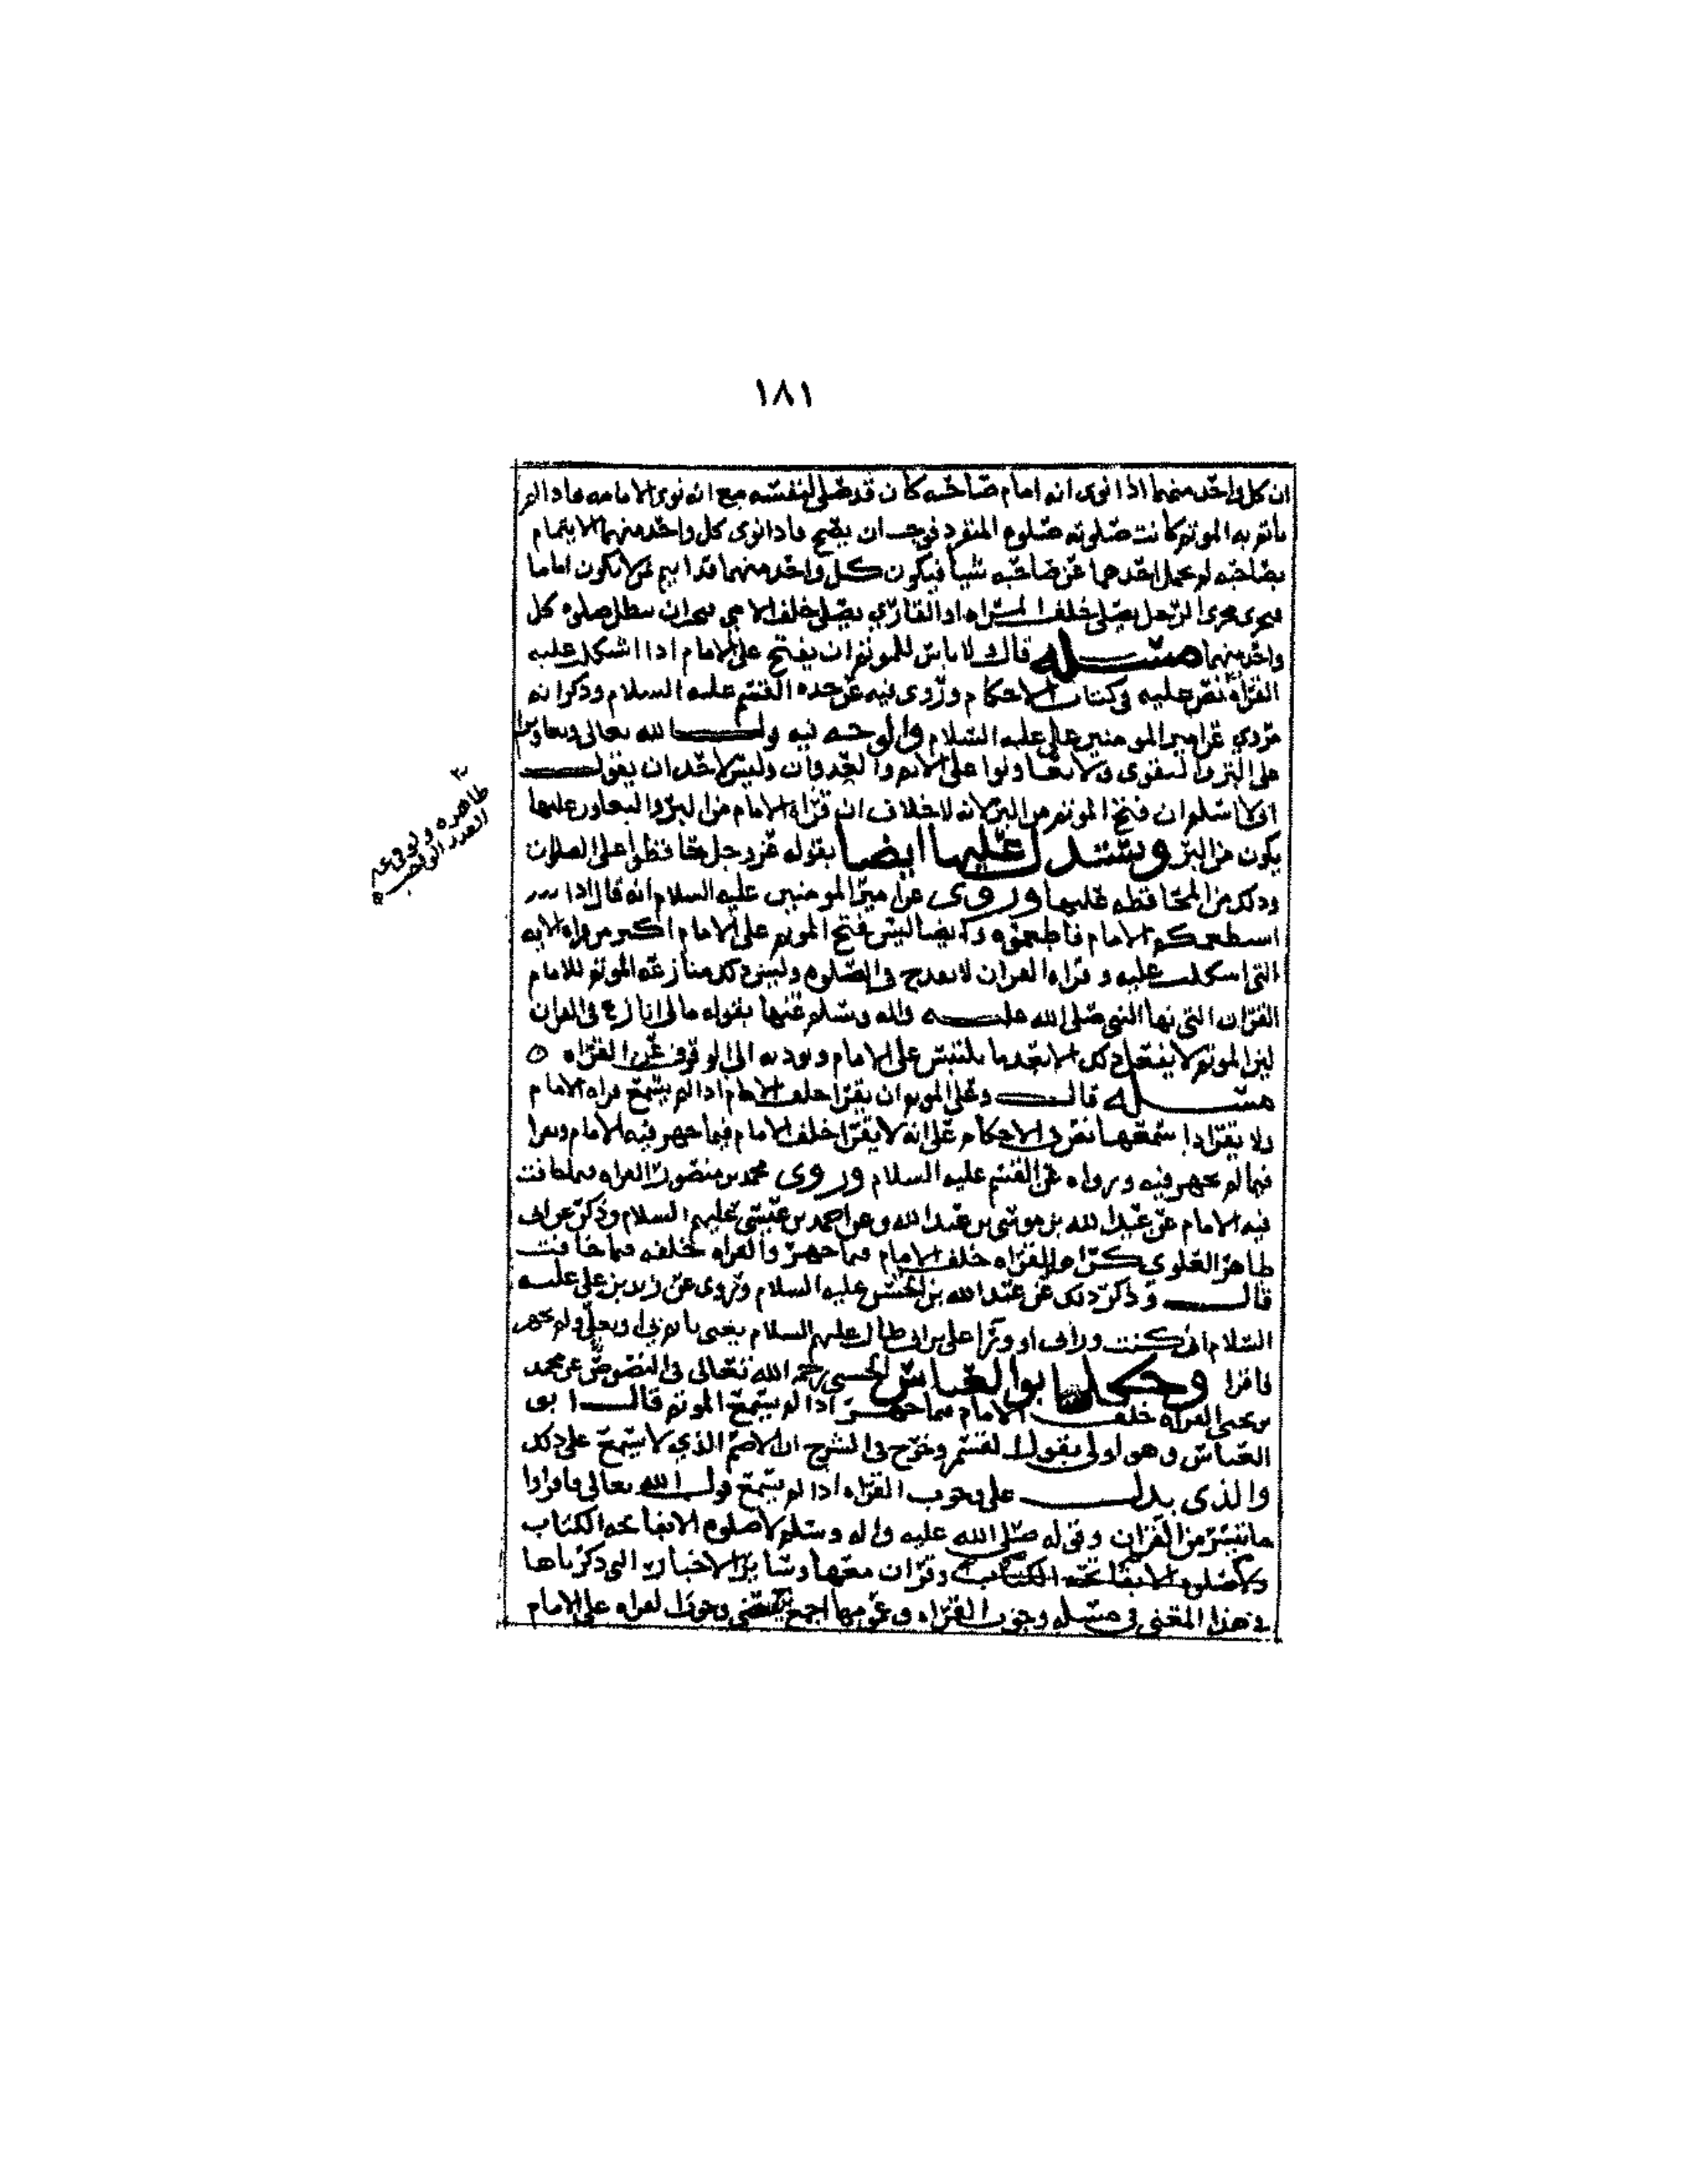 ١٨١
ان كل واحد منهما اذا نوى انه امام صاحبه كان قد صلى لنفسه مع انه نوى الامامه فاذا لم
ياتم به الموتم كانت صلوته صلوه المنفرد فيجب ان يصح فاذا نوى كل واحد منهما الايتمام
بصاحبه لم يحمل احدهما عن صاحبه شيا فيكون كل واحد منهما قد ايتم بمن لا يكون اماما
فيجرى مجرى الرجل يصلى خلف المراه او القارى يصلى خلف الامى فيجب ان تبطل صلوه كل
واحد منهما مسئله قال ولا باس للموتم ان يفتح على الامام اذا اشكلت عليه
القراه نص عليه فى كتاب الاحكام وروى فيه عن جده القسم عليه السلام وذكر انه
مروي عن امير المومنين على عليه السلام والوجه فيه قول الله تعالى وتعاونوا
على البر والتقوى ولا تعاونوا على الاثم والعدوان وليس لاحد ان يقول
انى لا اسلم ان فتح الموتم من البر لانه لا خلاف ان قراه الامام من البر والتعاون عليها
يكون من البر ويستدل عليها ايضا بقوله عز وجل حافظوا على الصلوات
وذلك من المحافظه عليها وروى عن امير المومنين عليه السلام انه قال اذا
استطعمكم الامام فاطعموه وايضا ليس فتح الموتم على الامام اكثر من قراه الايه
التى اشكلت عليه وقراه القران لا تقدح فى الصلوه وليس ذلك منازعه الموتم للامام
القران التى نها النبى صلى الله عليه واله وسلم عنها بقوله مالى انازع فى القران
لان الموتم لا يفعل ذلك الا بعد ما يلتبس على الامام ويوديه الى الوقوف عن القراه ٥
مسئله قال وعلى الموتم ان يقرا خلف الامام اذا لم يسمع قراه الامام
ولا يقرا اذا سمعها نص فى الاحكام على انه لا يقرا خلف الامام فيما جهر فيه الامام ويقرا
فيما لم يجهر فيه ورواه عن القسم عليه السلام وروى محمد بن منصور القراه فيما خافت
فيه الامام عن عبد الله بن موسى بن عبد الله وعن احمد بن عيسى عليهم السلام وذكر عن ابى
طاهر العلوي القراه خلف الامام فيما جهر والقراه خلفه فيما خافت
قال وذكر ذلك عن عبد الله بن الحسن عليه السلام وروى عن زيد بن علي عليه
السلام ان كنت ورا على بن ابى طالب عليهم السلام يعنى ولم يجهر
فاقرا وحكى ابو العباس الحسنى رحمه الله تعالى فى النصوص عن محمد
بن يحيى القراه خلف الامام فيما جهر اذا لم يسمع الموتم قال ابو
العباس وهو اولى بقول القسم وخرج فى الشرح ان الاصم الذي لا يسمع على ذلك
والذى يدل على وجوب القراه اذا لم يسمع قول الله تعالى فاقراوا
ما تيسر من القران وقوله صلى الله عليه واله وسلم لا صلوه الا بفاتحه الكتاب
ولا صلوه الا بفاتحه الكتاب وقران معها وسائر الاخبار التى ذكرناها
فى هذا المعنى فى مسئله وجوب القراه وعمومها اجمع يقتضى وجوب القراه على الامام
طاهره